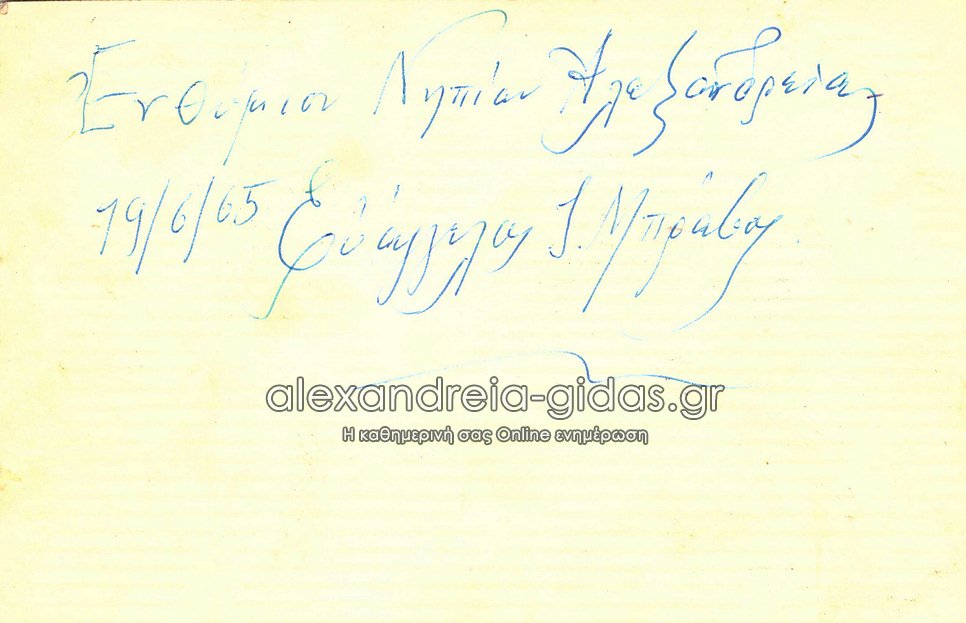 Ἐνθύμιον Νηπίων Ἀλεξανδρείας
19/6/65 Εὐάγγελος Ι. Μπράβος
alexandreia-gidas.gr
Η καθημερινή σας Online ενημέρωση